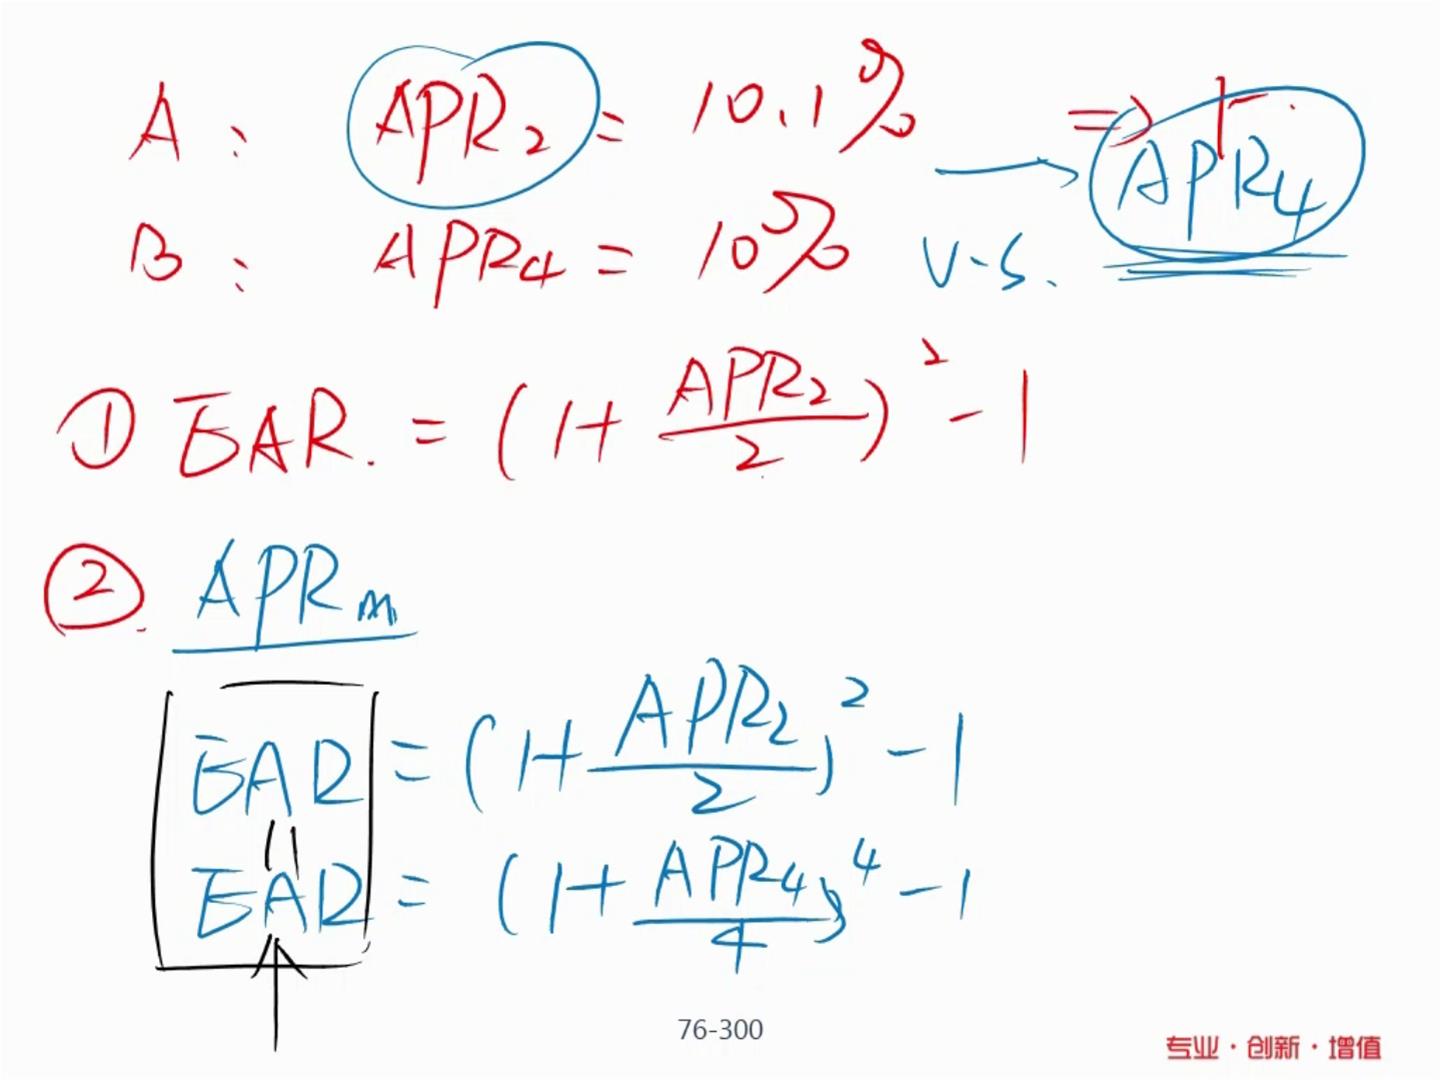 A: APR₂ = 10.1% ⇒
→ APR₄
B: APR₄ = 10% V.S.
① EAR. = (1+ APR₂/2)² - 1
② APRm
EAR = (1+ APR₂/2)² - 1
||
EAR = (1+ APR₄/4)⁴ - 1
76-300
专业·创新·增值